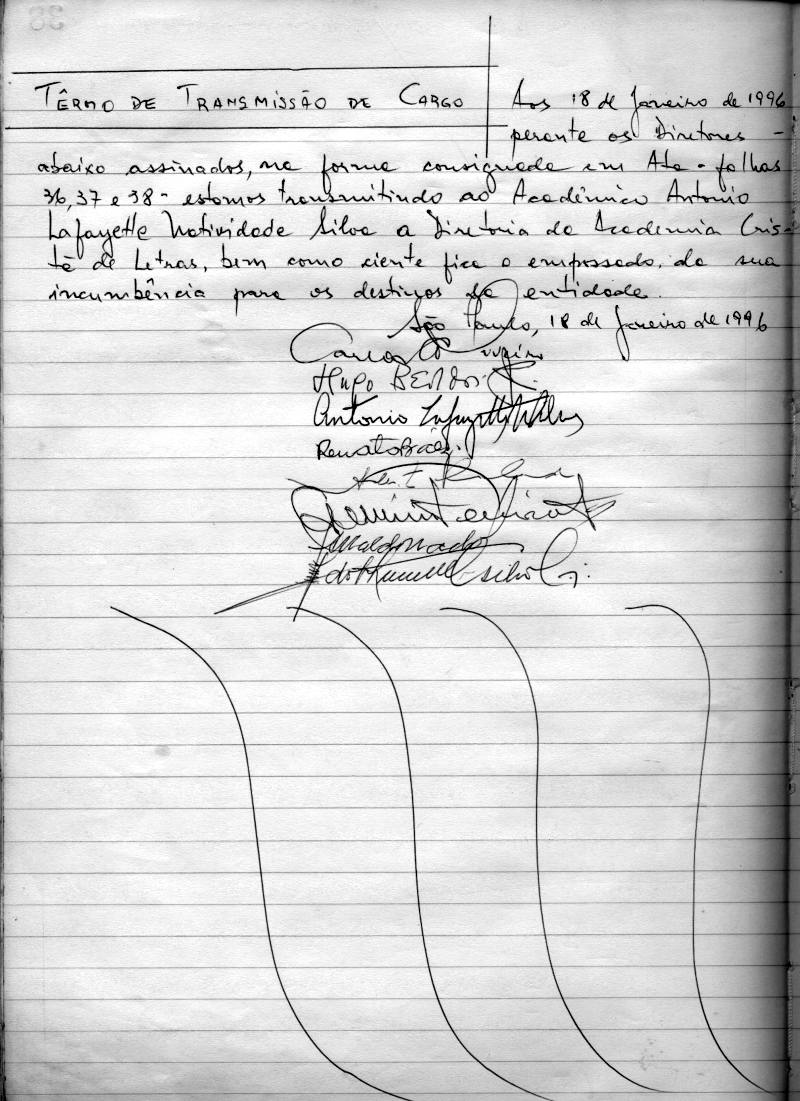 TÊRMO DE TRANSMISSÃO DE CARGO
Aos 18 de Janeiro de 1996
perante os Diretores -
abaixo assinados, na forma consignada em Ata - folhas
36, 37 e 38 - estamos transmitindo ao Acadêmico Antonio
Lafayette Natividade Silva a Diretoria da Academia Cris-
tã de Letras, bem como ciente fica o empossado, da sua
incumbência para os destinos da entidade.
São Paulo, 18 de Janeiro de 1996
Carlos
Hugo
Antonio Lafayette N. Silva
Renato Báez.
Maldonado
Silva